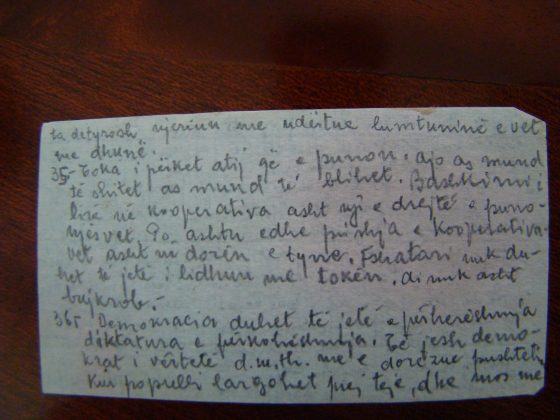 ta detyrosh njeriun me ndërtue lumtuninë e vet
me dhunë.
35- Toka i përket atij që e punon. ajo as mund
të shitet as mund të blihet. Bashkimi i
lirë në kooperativa asht një e drejtë e puno-
njësvet. Po ashtu edhe prishja e kooperativa-
vet asht në dorën e tyne. Fshatari nuk du-
het të jetë i lidhun me tokën. ai nuk asht
bujkrob.-
36- Demokracia duhet të jetë e përhershmja
diktatura e përkohëshmja. Të jesh demo-
krat i vërtetë d.m.th. me e dorëzue pushtetin
kur populli largohet prej teje, dhe mos me